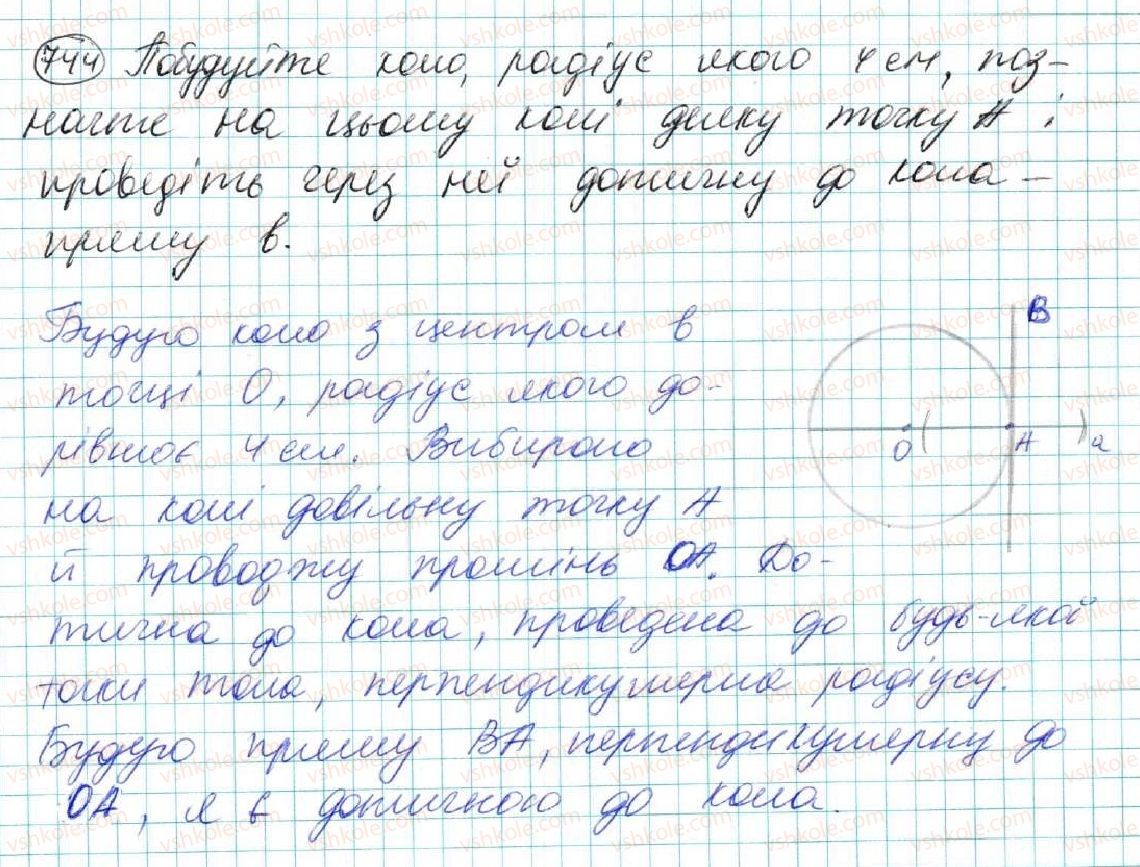 744 Побудуйте коло, радіус якого 4 см, поз-
начте на цьому колі деяку точку А і
проведіть через неї дотичну до кола –
пряму в.
Будую коло з центром в
точці О, радіус якого до-
рівнює 4 см. Вибираю
на колі довільну точку А
й проводжу промінь ОА. До-
тична до кола, проведена до будь-якої
точки тола, перпендикулярна радіусу.
Будую пряму ВА, перпендикулярну до
ОА, я в дотичного до кола.
В
О А а
vshkole.com